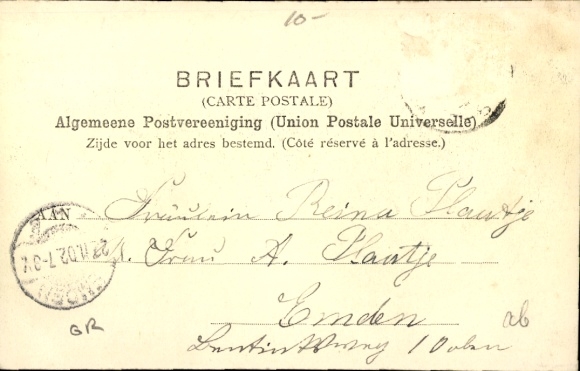 10-
BRIEFKAART
(CARTE POSTALE)
Algemeene Postvereeniging (Union Postale Universelle)
Zijde voor het adres bestemd. (Côté réservé à l'adresse.)
AAN Fräulein Reina Plaatje
Frau A. Plaatje
Emden
EMDEN
ab
GR